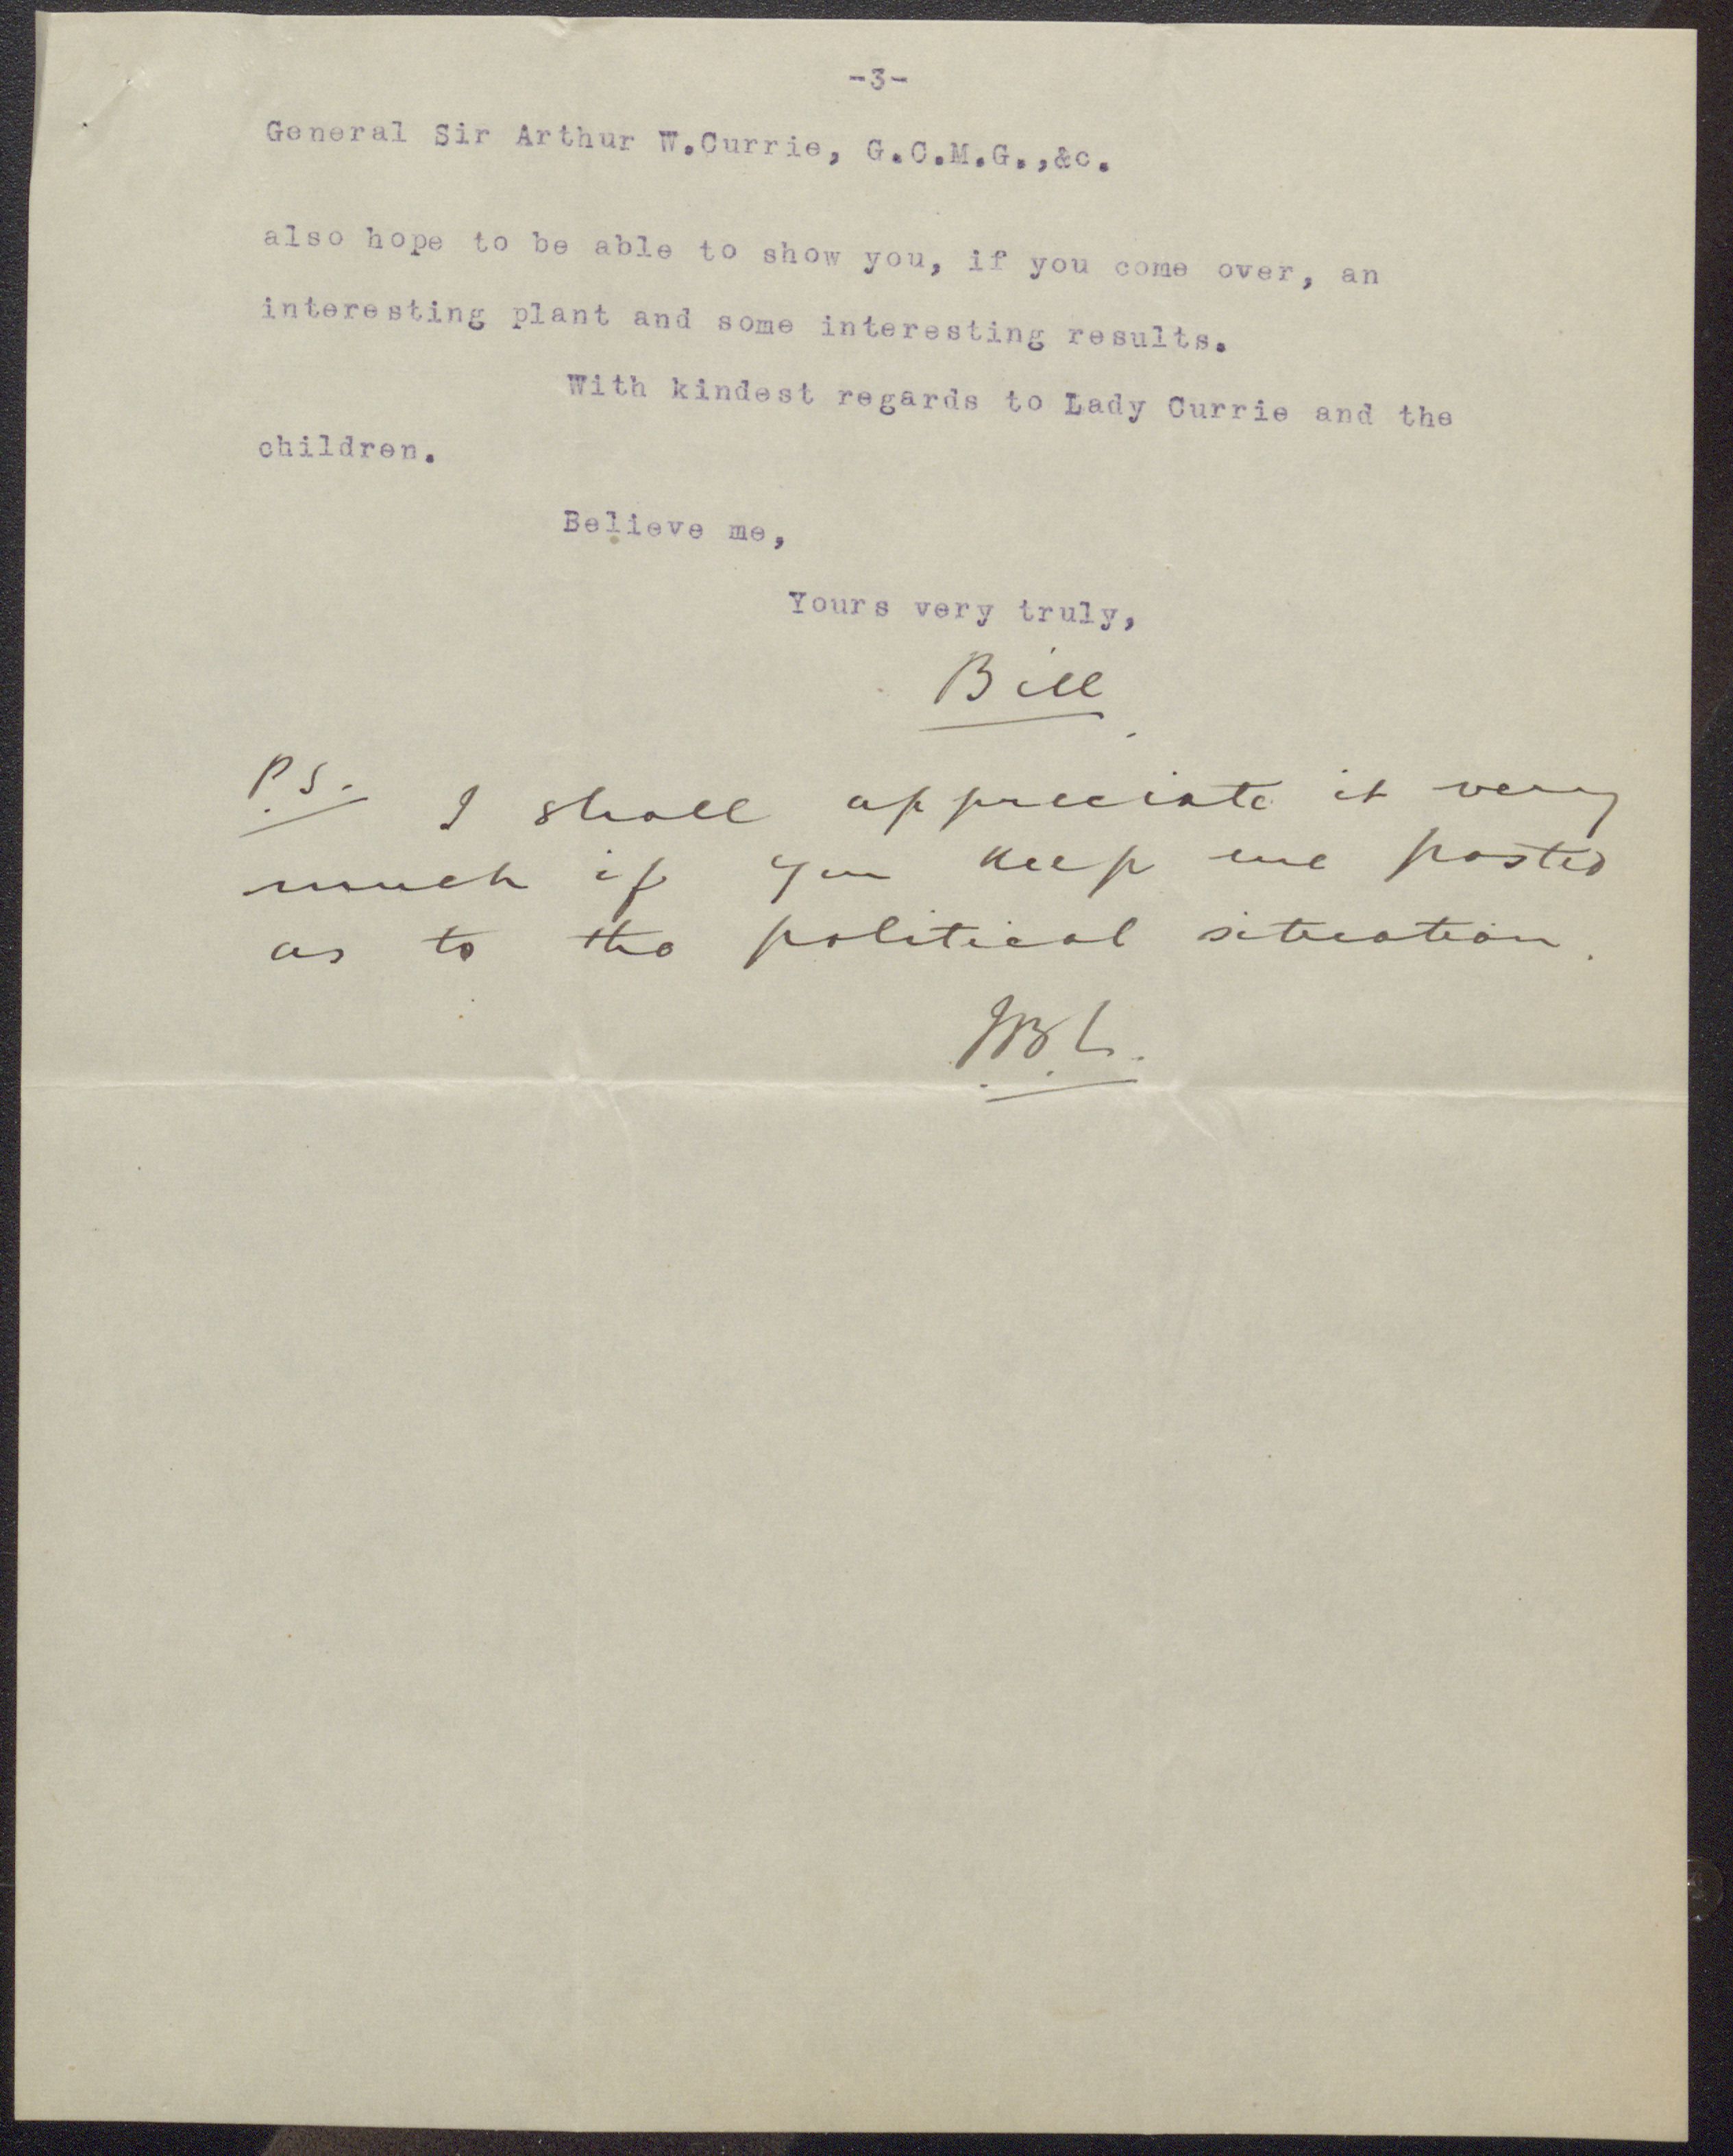 -3-
General Sir Arthur W.Currie, G.C.M.G.,&c.
also hope to be able to show you, if you come over, an
interesting plant and some interesting results.
With kindest regards to Lady Currie and the
children.
Believe me,
Yours very truly,
Bill
P.S. I shall appreciate it very
much if you keep me posted
as to the political situation.